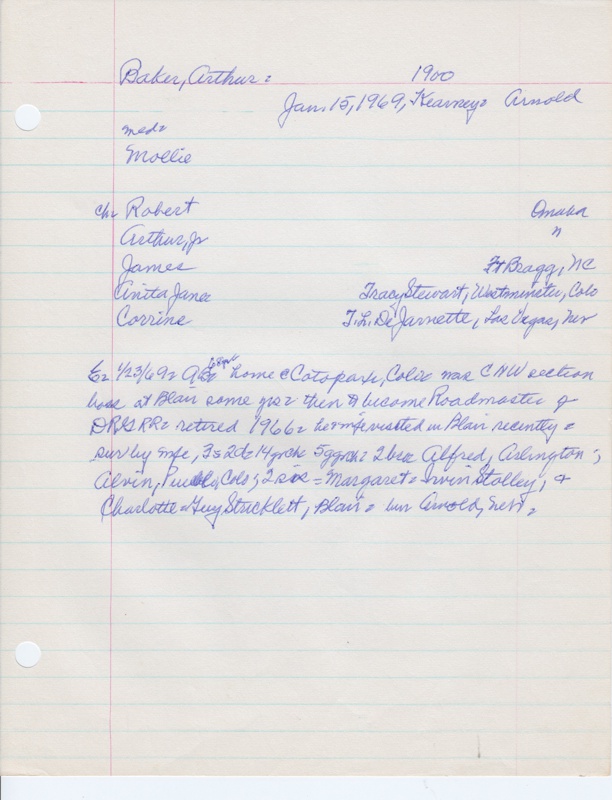 Baker, Arthur: 1900
Jan. 15, 1969, Kearney= Arnold
med=
Mollie
ch= Robert Omaha
Arthur, Jr "
James Ft Bragg, NC
Anita Jane= Tracy Stewart, Westminster, Colo
Corrine T. L. DeJarnette, Las Vegas, Nev
E= 1/23/69= AB= 68 home @ Cotopaxi, Colo= was CNW section
boss at Blair some yrs= then to become Roadmaster of
DRG RR= retired 1966= he+wife visited in Blair recently=
surv by wife, 3s 2d= 14 grch= 5 ggrch= 2 bs= Alfred, Arlington;
Alvin, Pueblo, Colo; 2 sis = Margaret= Irvin Stolley, &
Charlotte= Guy Stricklett, Blair= bur Arnold, Nebr=